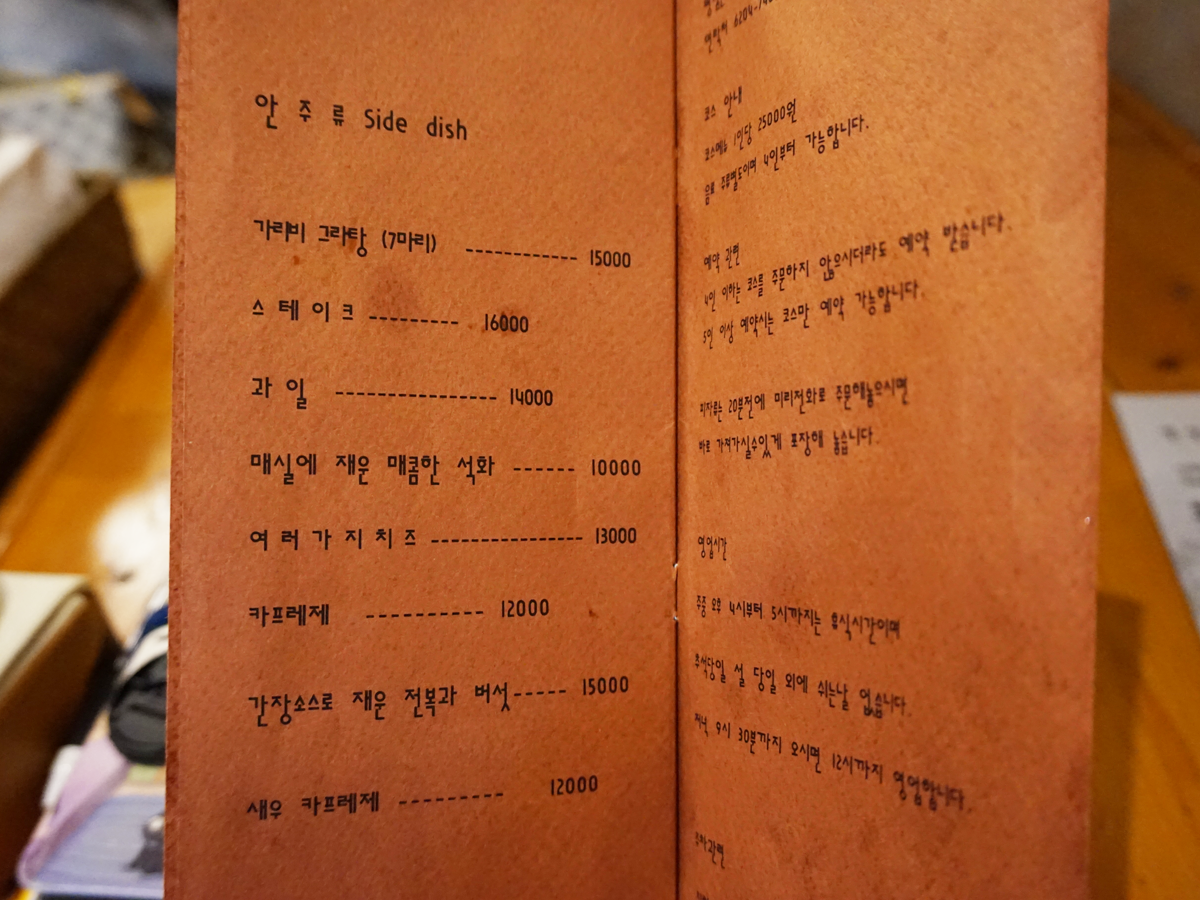 안 주 류 Side dish
가리비 그라탕 (7마리) ------------ 15000
스 테 이 크 --------- 16000
과 일 ---------------- 14000
매실에 재운 매콤한 석화 ------ 10000
여 러 가 지 치 즈 --------------- 13000
카프레제 ------------ 12000
간장소스로 재운 전복과 버섯----- 15000
새우 카프레제 ---------- 12000
연락처
코스 안내
코스메뉴 1인당 25000원
음료 주류별도이며 4인부터 가능합니다.
예약 관련
4인 이하는 코스를 주문하지 않으시더라도 예약 받습니다.
5인 이상 예약시는 코스만 예약 가능합니다.
피자류는 20분전에 미리전화로 주문해놓으시면
바로 가져가실수있게 포장해 놓습니다.
영업시간
주중 오후 4시부터 5시까지는 휴식시간이며
추석당일 설 당일 외에 쉬는날 없습니다.
저녁 9시 30분까지 오시면 12시까지 영업합니다.